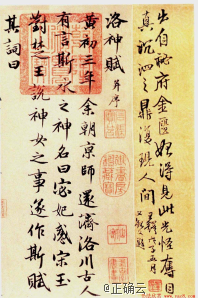 出自秘府金匱始得見此光怪奪目
真沉泗之鼎復現人間
洛神賦 并序
黃初三年余朝京師還濟洛川古人
有言斯水之神名曰宓妃感宋玉
對楚王說神女之事遂作斯賦
其詞曰
@正确云